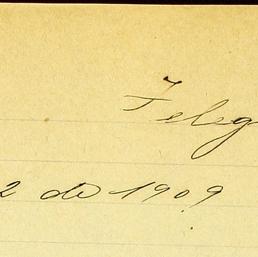 Teleg
2 de 1909